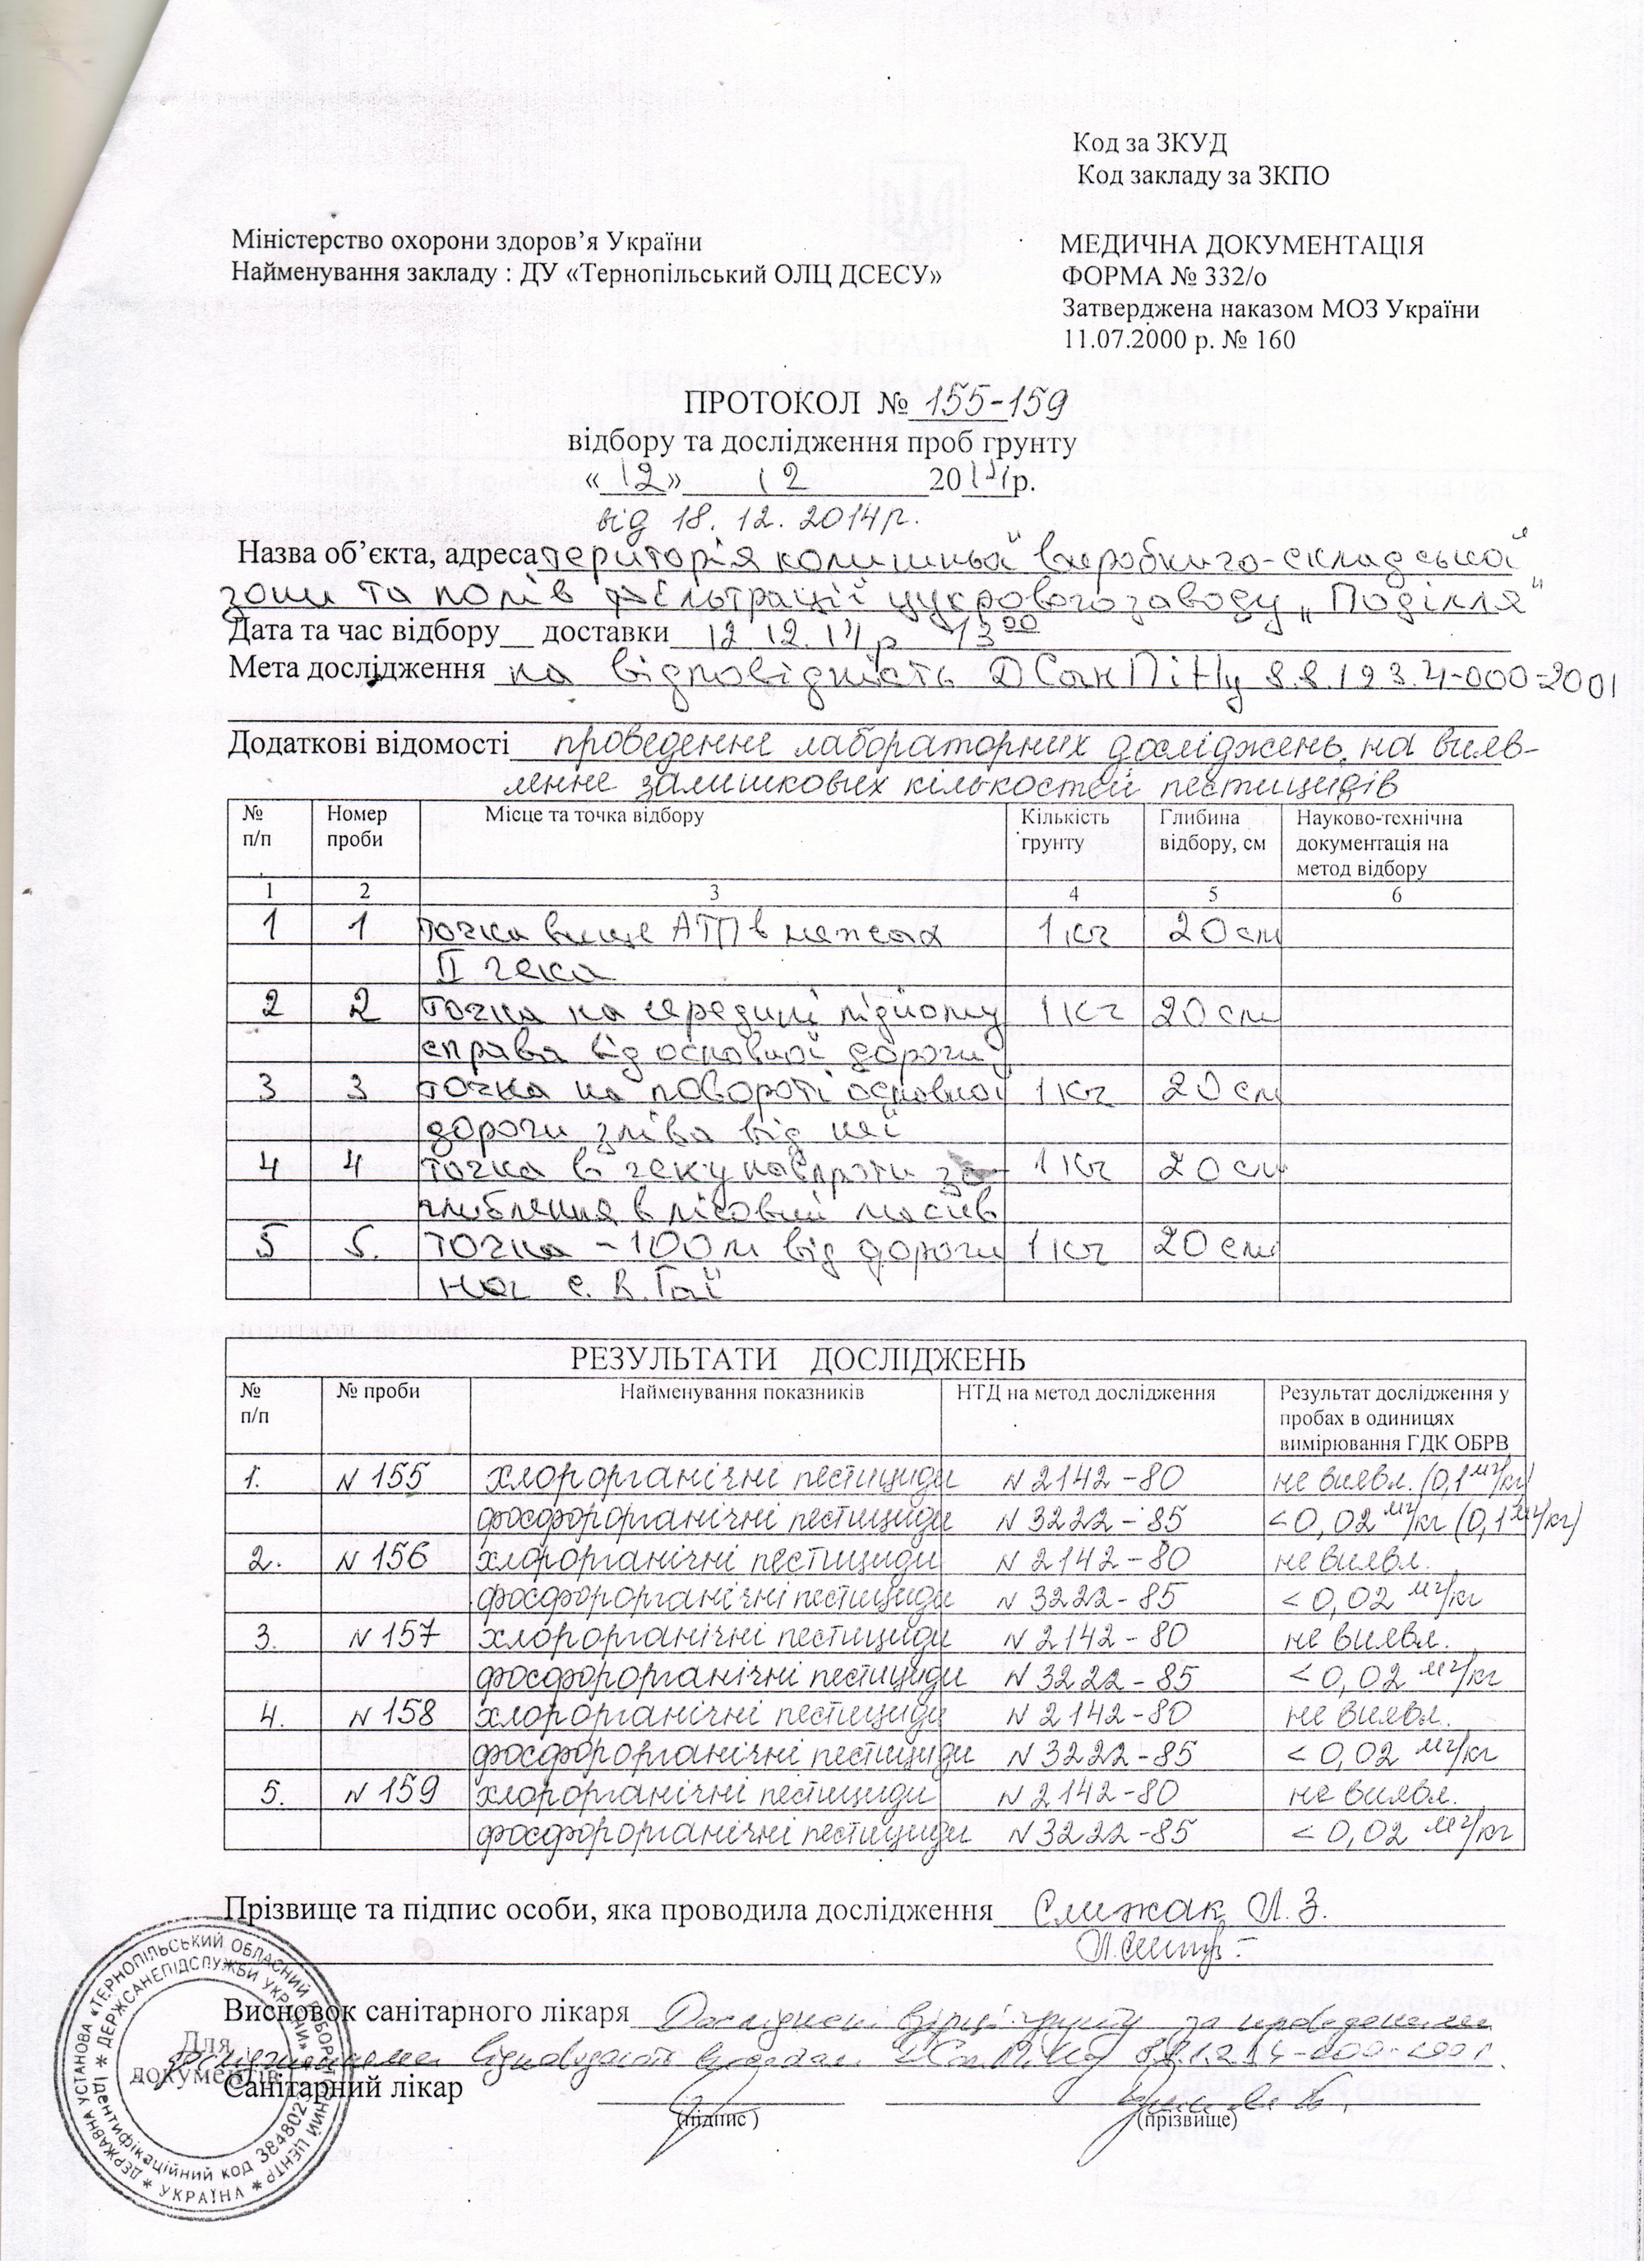 Код за ЗКУД
Код закладу за ЗКПО
Міністерство охорони здоров’я України
Найменування закладу : ДУ «Тернопільський ОЛЦ ДСЕСУ»
МЕДИЧНА ДОКУМЕНТАЦІЯ
ФОРМА № 332/о
Затверджена наказом МОЗ України
11.07.2000 р. № 160
ПРОТОКОЛ № 155-159
відбору та дослідження проб грунту
«12» 12 2014р.
від 18.12.2014р.
Назва об’єкта, адреса територія колишньої виробничо-складської
зони та полів фільтрації цукрового заводу „Поділля"
Дата та час відбору__ доставки 12 12.14р 13 00
Мета дослідження на відповідність ДСанПіНу 8.8.1.2.3.4-000-2001
Додаткові відомості проведення лабораторних досліджень на вияв-
лення залишкових кількостей пестицидів
№ п/п Номер проби Місце та точка відбору Кількість грунту Глибина відбору, см Науково-технічна документація на метод відбору
1 2 3 4 5 6
1 1 точка вище АТП в межах 1кг 20см
ІІ чека
2 2 точка на середині підйому 1кг 20см
справа від основної дороги
3 3 точка на повороті основної 1кг 20см
дороги зліва від неї
4 4 точка в чеку навпроти за- 1кг 20см
глиблення в лісовий масив
5 5. точка ~100м від дороги 1кг 20см
на с. В. Гаї
РЕЗУЛЬТАТИ ДОСЛІДЖЕНЬ
№ п/п № проби Найменування показників НТД на метод дослідження Результат дослідження у пробах в одиницях вимірювання ГДК ОБРВ
1. №155 хлорорганічні пестициди №2142-80 не виявл. (0,1мг/кг)
фосфорорганічні пестициди №3222-85 <0,02 мг/кг (0,1мг/кг)
2. №156 хлорорганічні пестициди №2142-80 не виявл.
фосфорорганічні пестициди №3222-85 <0,02 мг/кг
3. №157 хлорорганічні пестициди №2142-80 не виявл.
фосфорорганічні пестициди №3222-85 <0,02 мг/кг
4. №158 хлорорганічні пестициди №2142-80 не виявл.
фосфорорганічні пестициди №3222-85 <0,02 мг/кг
5. №159 хлорорганічні пестициди №2142-80 не виявл.
фосфорорганічні пестициди №3222-85 <0,02 мг/кг
Прізвище та підпис особи, яка проводила дослідження Слижак Л.З.
Висновок санітарного лікаря Досліджені взірці грунту за проведеними
дослідженнями відповідають вимогам ДСанПіНу
Санітарний лікар
(підпис) (прізвище)
ДЕРЖАВНА УСТАНОВА «ТЕРНОПІЛЬСЬКИЙ ОБЛАСНИЙ ЛАБОРАТОРНИЙ ЦЕНТР
ДЕРЖСАНЕПІДСЛУЖБИ УКРАЇНИ»
Ідентифікаційний код
УКРАЇНА
Для
документів